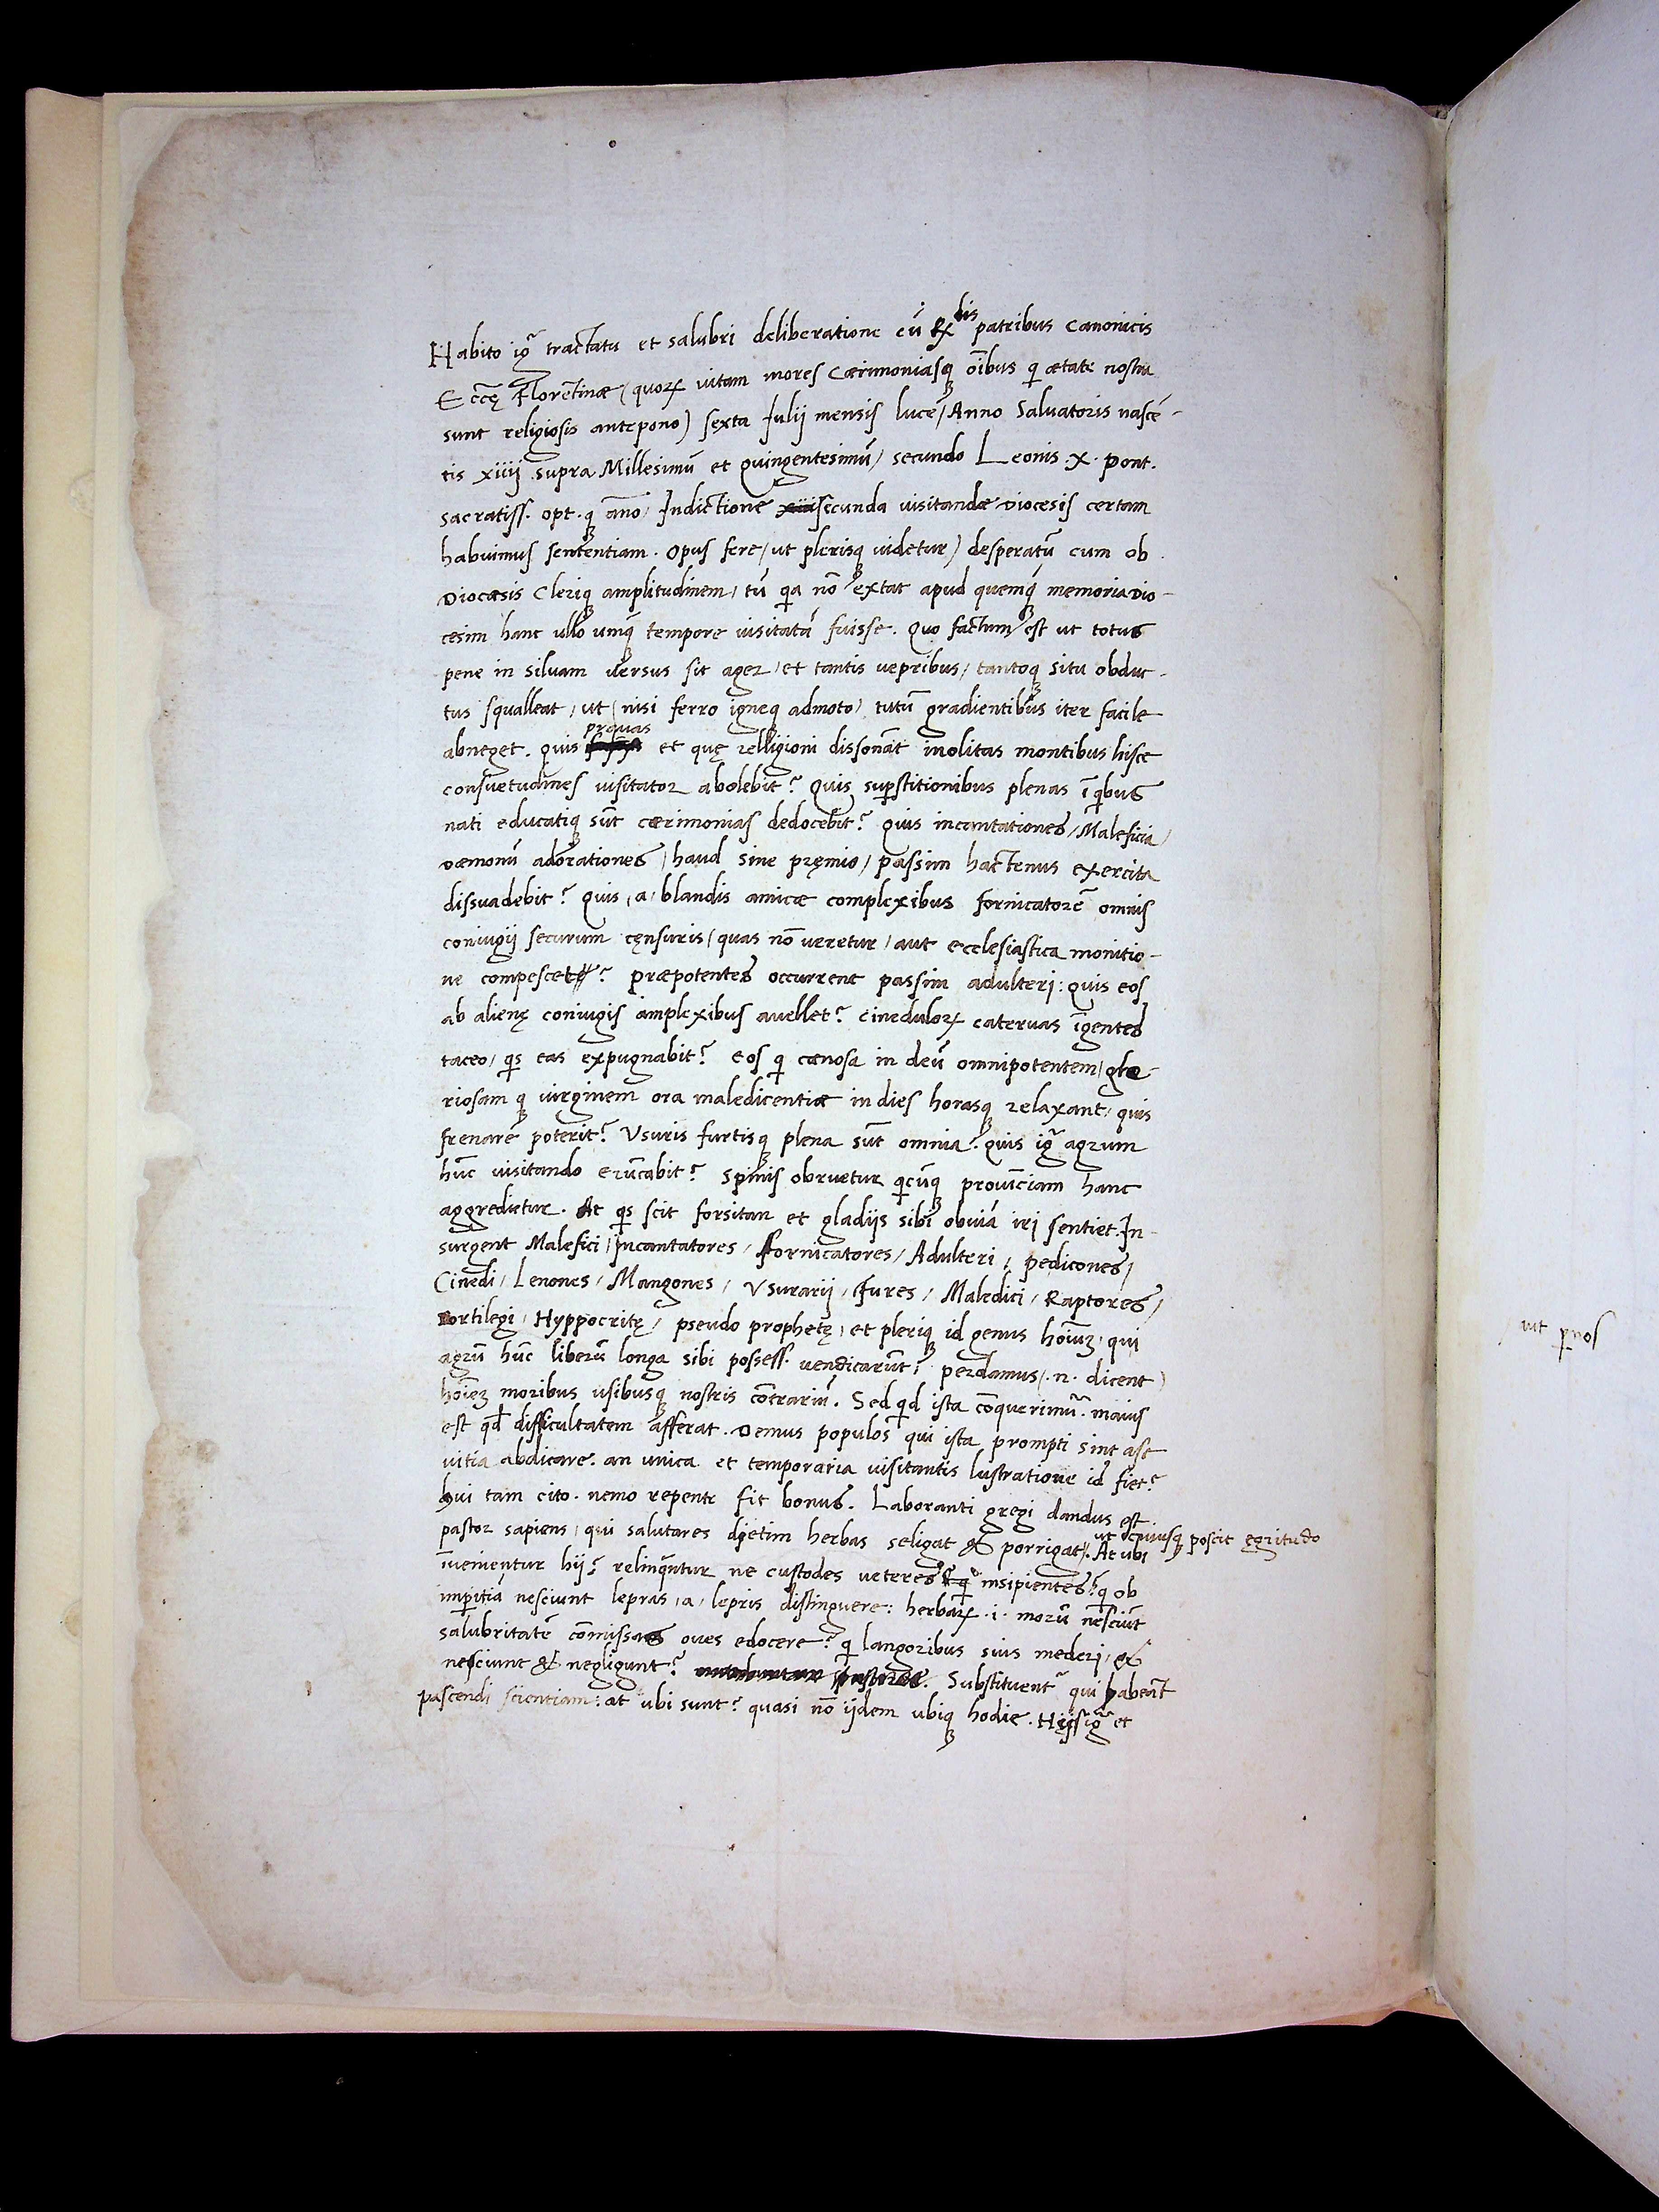 Habito igr̃ tractatu et salubri deliberatione cũ Rdis patribus canonicis
Eccę Florentinæ (quoꝝ vitam mores Cærimoniasqꝫ oĩbus q̃ ætate nostra
sunt religiosis antepono) sexta Julij mensis luce / Anno Salvatoris nascẽ-
tis xiiij supra Millesimũ et Quingentesimũ / secundo Leonis .X. Pont.
sacratiss. opt. qꝫ anno / Indictione secunda visitandæ Diocesis certam
habuimus sententiam. Opus fere (ut plerisqꝫ videtur) desperatũ cum ob
Diocæsis Cleriqꝫ amplitudinem, tũ qa nõ extat apud quemqꝫ memoria Dio-
cesim hanc ullo unqꝫ tempore visitatã fuisse. Quo factum est ut totus
pene in silvam versus sit ager, et tantis vepribus, tantoqꝫ situ obduc-
tus squalleat, ut (nisi ferro igneqꝫ admoto) tutũ gradientibus iter facile
abneget. Quis pravas et quę relligioni dissonãt inolitas montibus hisce
consuetudines visitator abolebit? Quis suꝑstitionibus plenas ĩ qibus
nati educatiqꝫ sũt cærimonias dedocebit? Quis incantationes / Maleficia /
Dæmonũ adorationes (haud sine pręmio) passim hactenus exercita
dissuadebit? Quis, a, blandis amicæ complexibus fornicatorẽ omnis
coniugij securum cęnsuris (quas nõ veretur) aut ecclesiastica monitio-
ne compescet? Præpotentes occurrent passim adulteri: quis eos
ab alienę coniugis amplexibus avellet? Cineduloꝝ catervas ĩgentes
taceo, qis eas expugnabit? Eos q̃ cænosa in deũ omnipotentem, glo-
riosam qꝫ virginem ora maledicentiæ in dies horasqꝫ relaxant, quis
frenare poterit? Usuris furtisqꝫ plena sũt omnia. Quis igr̃ agrum
hũc visitando erũcabit? Spinis obruetur qicũqꝫ provĩciam hanc
aggredietur. At qis scit forsitan et gladijs sibi obviã iri sentiet. In-
surgent Malefici, Incantatores, Fornicatores, Adulteri, pedicones,
Cinedi, Lenones, Mangones, Usurarij, Fures, Maledici, Raptores,
Sortilegi, Hyppocritę, pseudo prophetę, et pleriqꝫ id genus hoĩuꝫ, qui
agrũ hũc liberũ longa sibi possess. vendicarũt? Perdamus (.n. dicent)
hoĩeꝫ moribus usibusqꝫ nostris cõtrariũ. Sed qid ista cõquerimur̃. maius
est qd difficultatem afferat. Demus populos qui ista prompti sint ast
vitia abdicare. an unica et temporaria visitantis lustratione id fiet?
hui tam cito. nemo repente fit bonus. Laboranti gregi dandus est
pastor sapiens, qui salutares dietim herbas seligat & porrigat. ut cuiusqꝫ poscit ęgritudo At ubi
ĩvenientur hij? relinqũtur ne custodes veteres insipientes? q̃ ob
imꝑitiã nesciunt lepras, a, lepris distinguere: herbaꝝ .i. morũ nesciũt
salubritatẽ cõmissas oves edocere? q̃ langoribus suis mederi, et
nesciunt & negligunt? Substituentr̃ qui habeãt
pascendi scientiam: at ubi sunt? quasi nõ ijdem ubiqꝫ hodie. Hijs igr̃ et